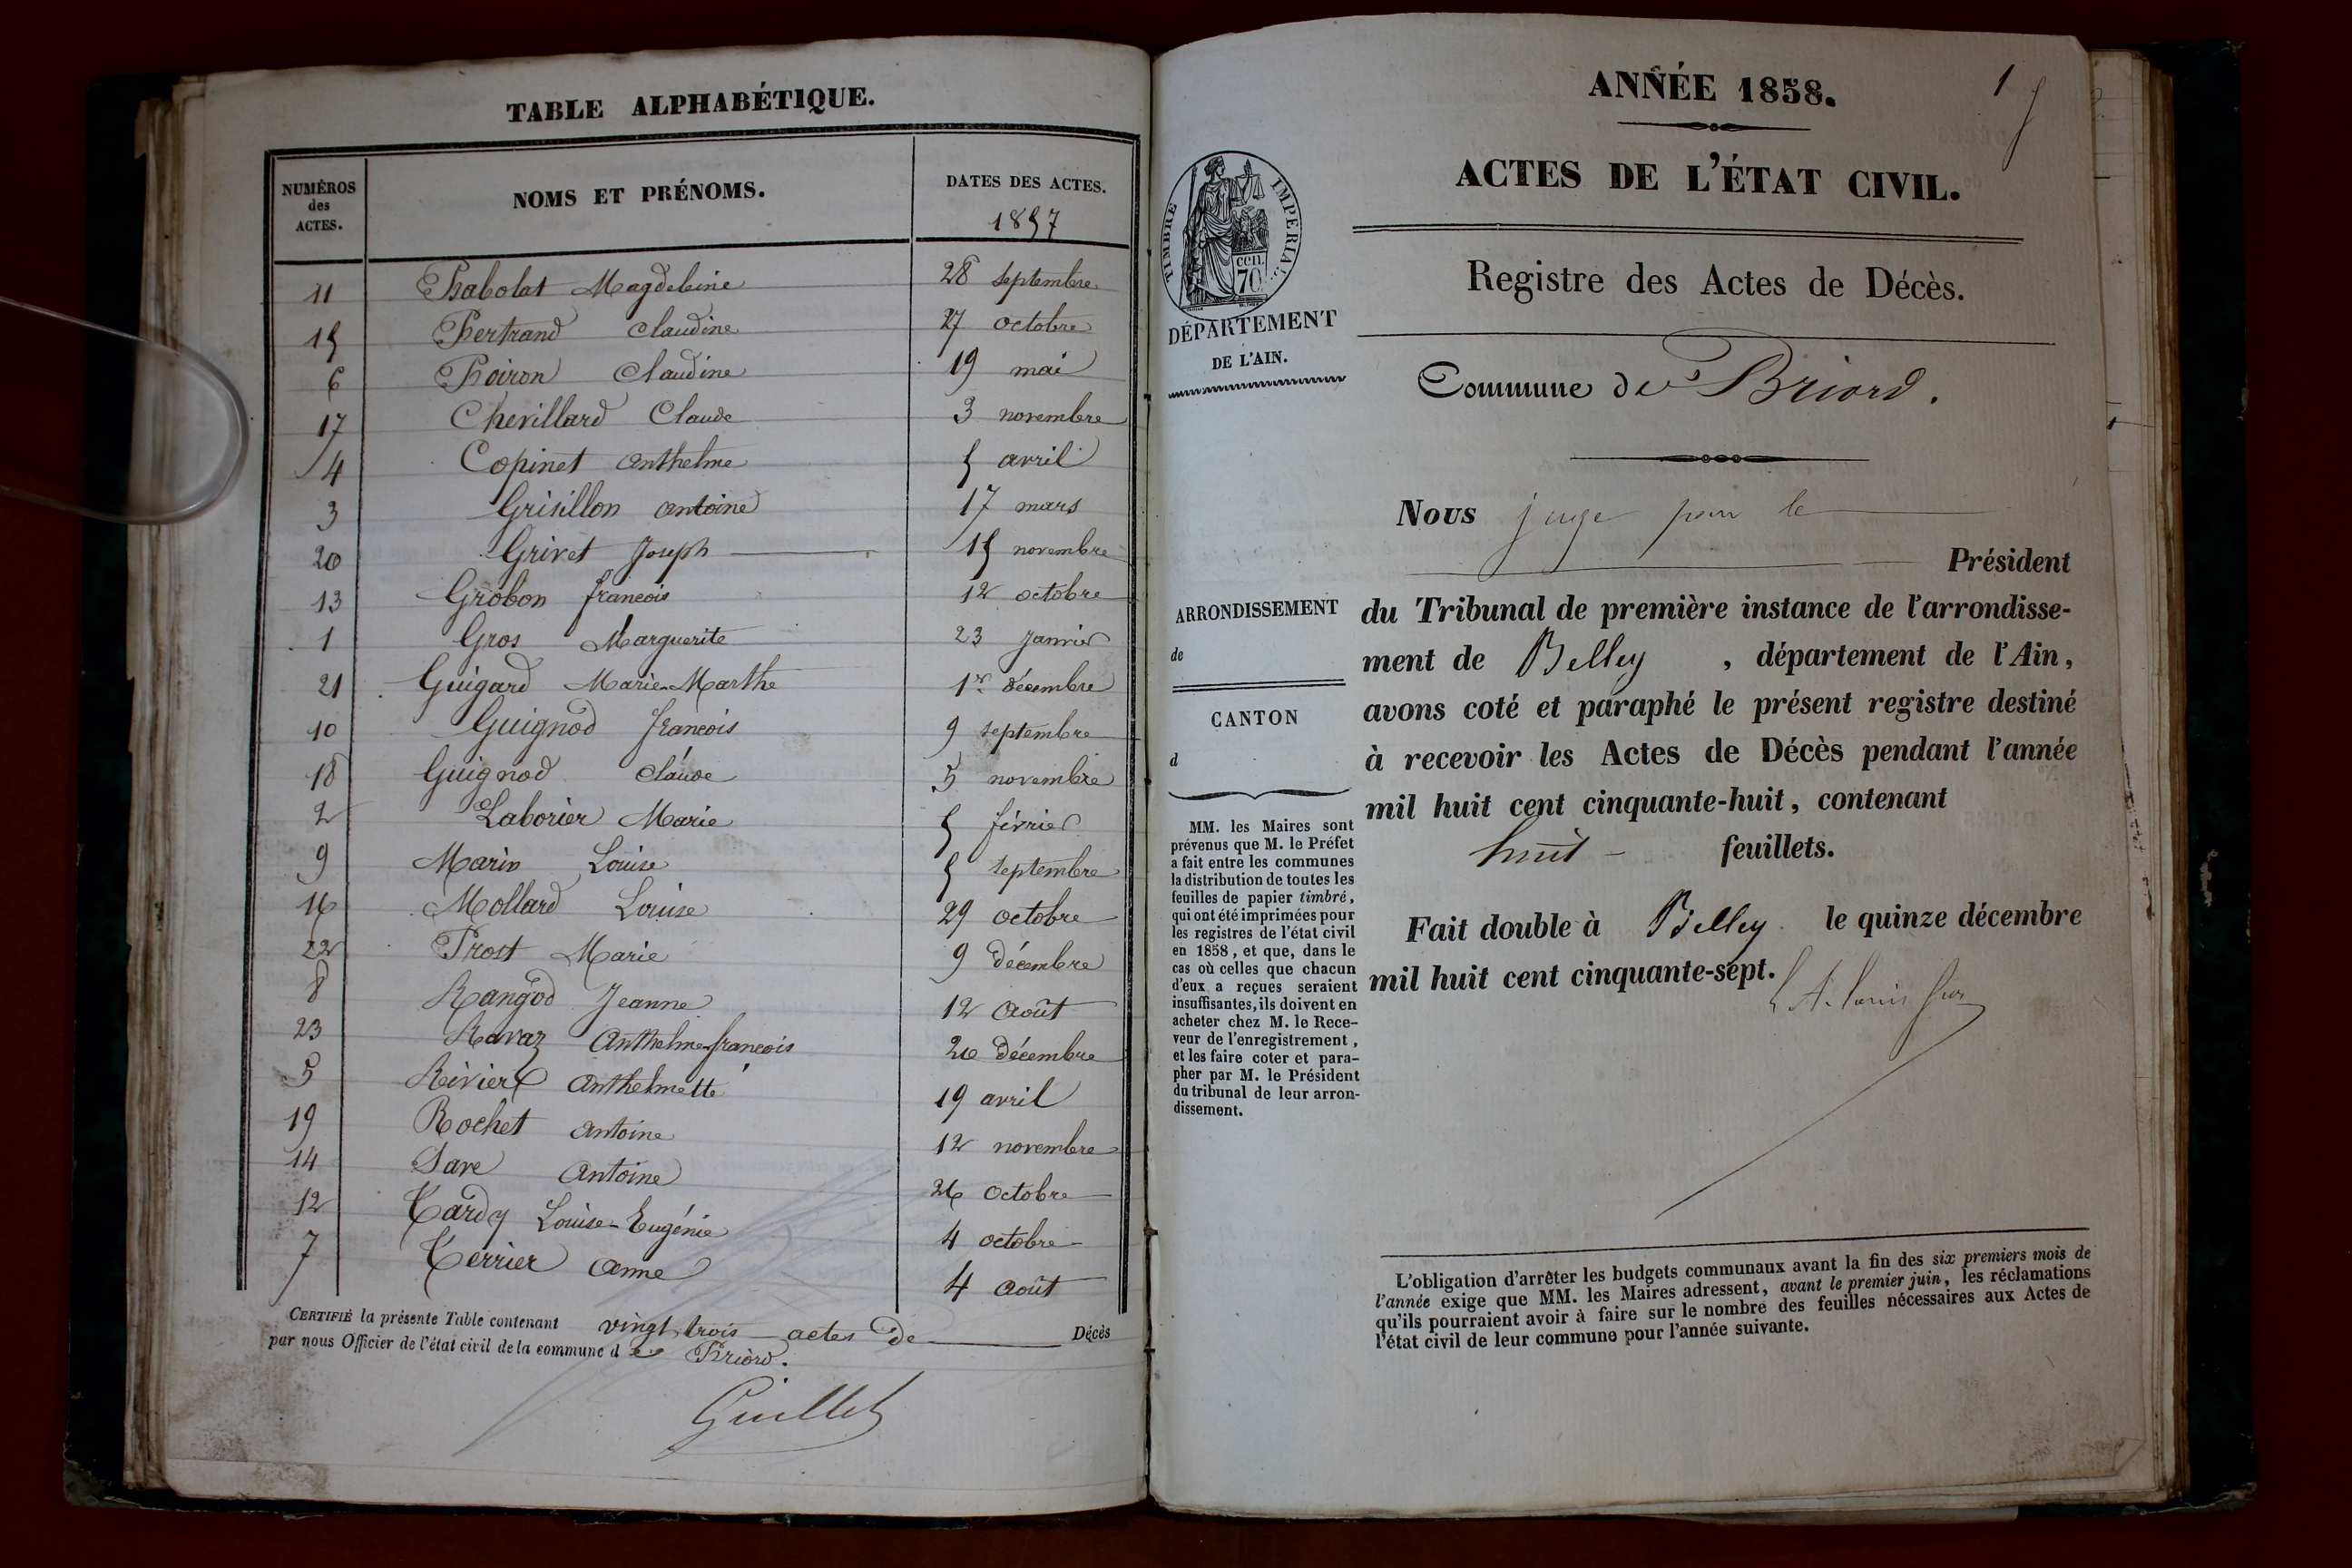 TABLE ALPHABÉTIQUE.
NUMÉROS des ACTES.
NOMS ET PRÉNOMS.
DATES DES ACTES.
1857
11 Babolat Magdeleine 28 septembre
15 Bertrand Claudine 27 octobre
6 Boiron Claudine 19 mai
17 Chevillard Claude 3 novembre
4 Copinet anthelme 5 avril
3 Grisillon antoine 17 mars
20 Grivet Joseph 15 novembre
13 Grobon francois 12 octobre
1 Gros Marguerite 23 Janvier
21 Guigard Marie-Marthe 1er décembre
10 Guignod francois 9 septembre
18 Guignod Claude 5 novembre
2 Laborier Marie 5 février
9 Marin Louise 5 septembre
16 Mollard Louise 29 octobre
22 Prost Marie 9 décembre
8 Rangod Jeanne 12 Août
23 Ravaz Anthelme-francois décembre
5 Rivier anthelmette 19 avril
19 Rochet antoine 12 novembre
14 Save Antoine 26 octobre
12 Tardy Louise-Eugénie 4 octobre
7 Terrier anne 4 août
CERTIFIÉ la présente Table contenant vingt trois actes de Décès
par nous Officier de l'état civil de la commune de Briord.
Guillet
1
ANNÉE 1858.
ACTES DE L'ÉTAT CIVIL.
TIMBRE IMPERIAL
cen. 70
DÉPARTEMENT
DE L'AIN.
Registre des Actes de Décès.
Commune de Briord.
Nous juge pour le
Président
ARRONDISSEMENT
de
CANTON
d
du Tribunal de première instance de l'arrondisse-
ment de Belley, département de l'Ain,
avons coté et paraphé le présent registre destiné
à recevoir les Actes de Décès pendant l'année
mil huit cent cinquante-huit, contenant
huit feuillets.
Fait double à Belley le quinze décembre
mil huit cent cinquante-sept.
MM. les Maires sont
prévenus que M. le Préfet
a fait entre les communes
la distribution de toutes les
feuilles de papier timbré,
qui ont été imprimées pour
les registres de l'état civil
en 1858, et que, dans le
cas où celles que chacun
d'eux a reçues seraient
insuffisantes, ils doivent en
acheter chez M. le Rece-
veur de l'enregistrement,
et les faire coter et para-
pher par M. le Président
du tribunal de leur arron-
dissement.
L'obligation d'arrêter les budgets communaux avant la fin des six premiers mois de
l'année exige que MM. les Maires adressent, avant le premier juin, les réclamations
qu'ils pourraient avoir à faire sur le nombre des feuilles nécessaires aux Actes de
l'état civil de leur commune pour l'année suivante.